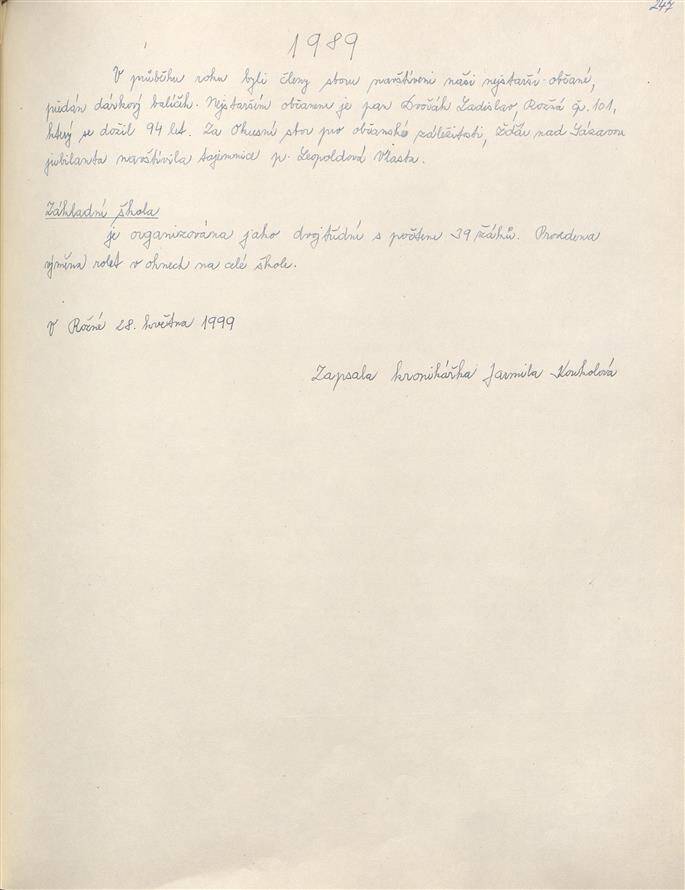 247
1989
V průběhu roku byli členy sboru navštíveni naši nejstarší občané,
předán dárkový balíček. Nejstarším občanem je pan Dvořák Ladislav, Rožná čp. 101,
který se dožil 94 let. Za Okresní sbor pro občanské záležitosti, Žďár nad Sázavou
jubilanta navštívila tajemnice p. Leopoldová Vlasta.
Základní škola
je organizována jako dvojtřídní s počtem 39 žáků. Provedena
výměna rolet v oknech na celé škole.
V Rožné 28. května 1999
Zapsala kronikářka Jarmila Koukolová